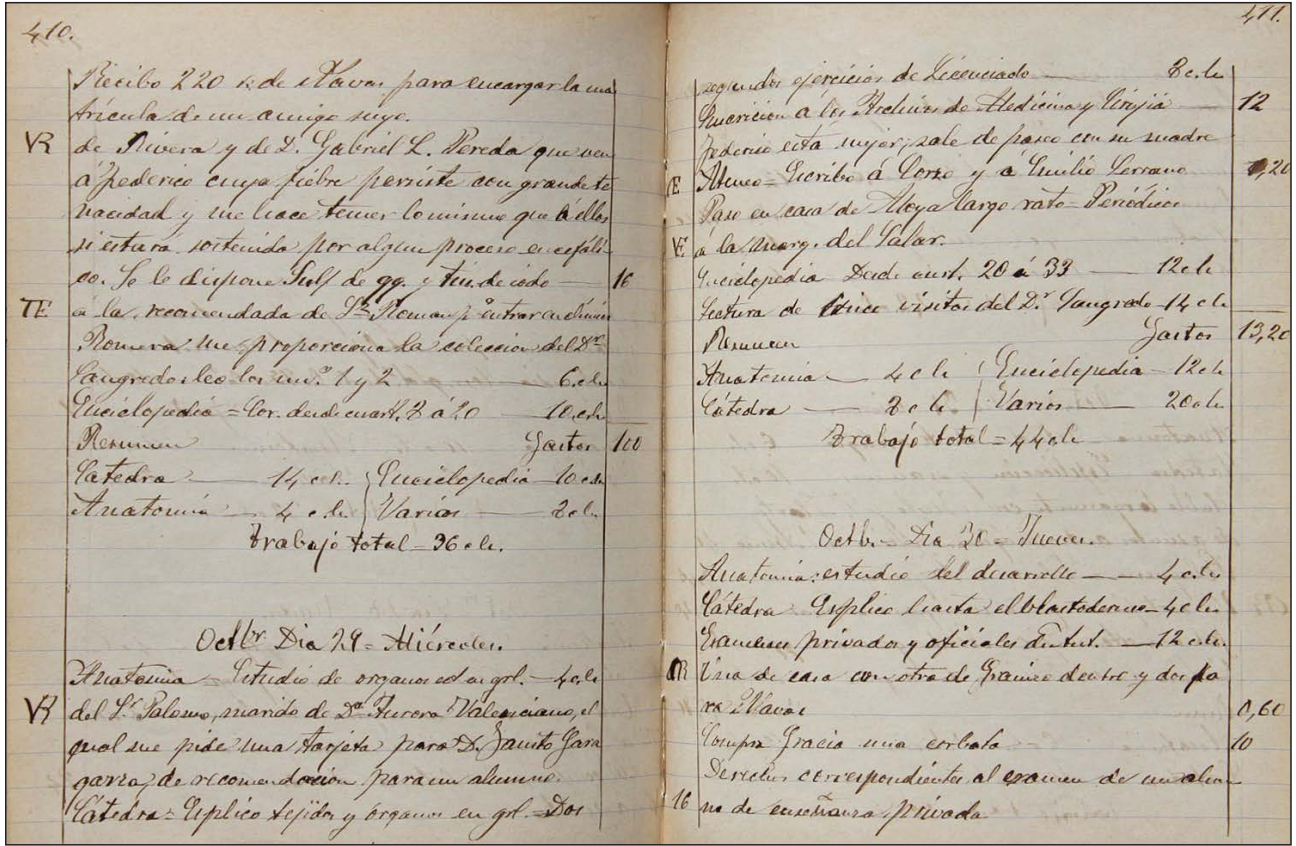 410.
Recibo 220 r. de Navas para encargar la ma
trícula de un amigo suyo.
VR de Rivera y de D. Gabriel L. Pereda que ven
á Federico cuya fiebre persiste con grande te
nacidad y me hace temer lo mismo que á ellos
si estará sostenida por algun proceso encefáli-
co. Se le dispone Sulf de qq. y tin. de iodo — 16
TE á la recomendada de Sn Roman pª entrar en
Romera me proporciona la coleccion del Dr.
Sangredo: leo los nu.s 1 y 2 — 6 c.h
Enciclopedia = Cor. desde cuart. 8 á 20 — 10 c.h
Resumen Gastos 100
Cátedra — 14 c.h. Enciclopedia — 10 c.h
Anatomía — 4 c.h. Varios — 8 c.h
Trabajo total = 36 c.h.
Octbr. Dia 29 = Miércoles.
Anatomia = Estudio de organos en grl. — 4 c.h
VR del Sr Palomo, marido de Dª Aurora Valenciano, el
qual me pide una tarjeta para D. Jasito Gara
garza, de recomendación para un alumno.
Cátedra = Esplico tejidos y organos en grl. = Dos
411.
segundos ejercicios de Licenciado — 8 c.h
Suscricion a los Archivos de Medicina y Cirujía — 12
Federico está mejor; sale de paseo con su madre
TE Ateneo = Escribo á Corzo y a Emilio Serrano 1,20
Paso en casa de Moya largo rato = Periódicos
VE á la marq. del Salar.
Enciclopedia Desde cuart. 20 á 33 — 12 c.h
Lectura de cinco visitas del Dr. Sangredo — 14 c.h
Resumen Gastos 13,20
Anatomia — 4 c.h Enciclopedia — 12 c.h
Cátedra — 8 c.h Varios — 20 c.h
Trabajo total = 44 c.h
Octb. = Dia 30 = Jueves.
Anatomia: estudio del desarrollo — 4 c.h
Cátedra Esplico hasta el blastodermo — 4 c.h
Examenes privados y oficiales — 12 c.h.
CR Una de casa con otra de Gramizo dentro y dos pa
ra Navas 0,60
Compra Gracia una corbata 10
Derechos correspondientes al examen de un alum
16 no de enseñanza privada